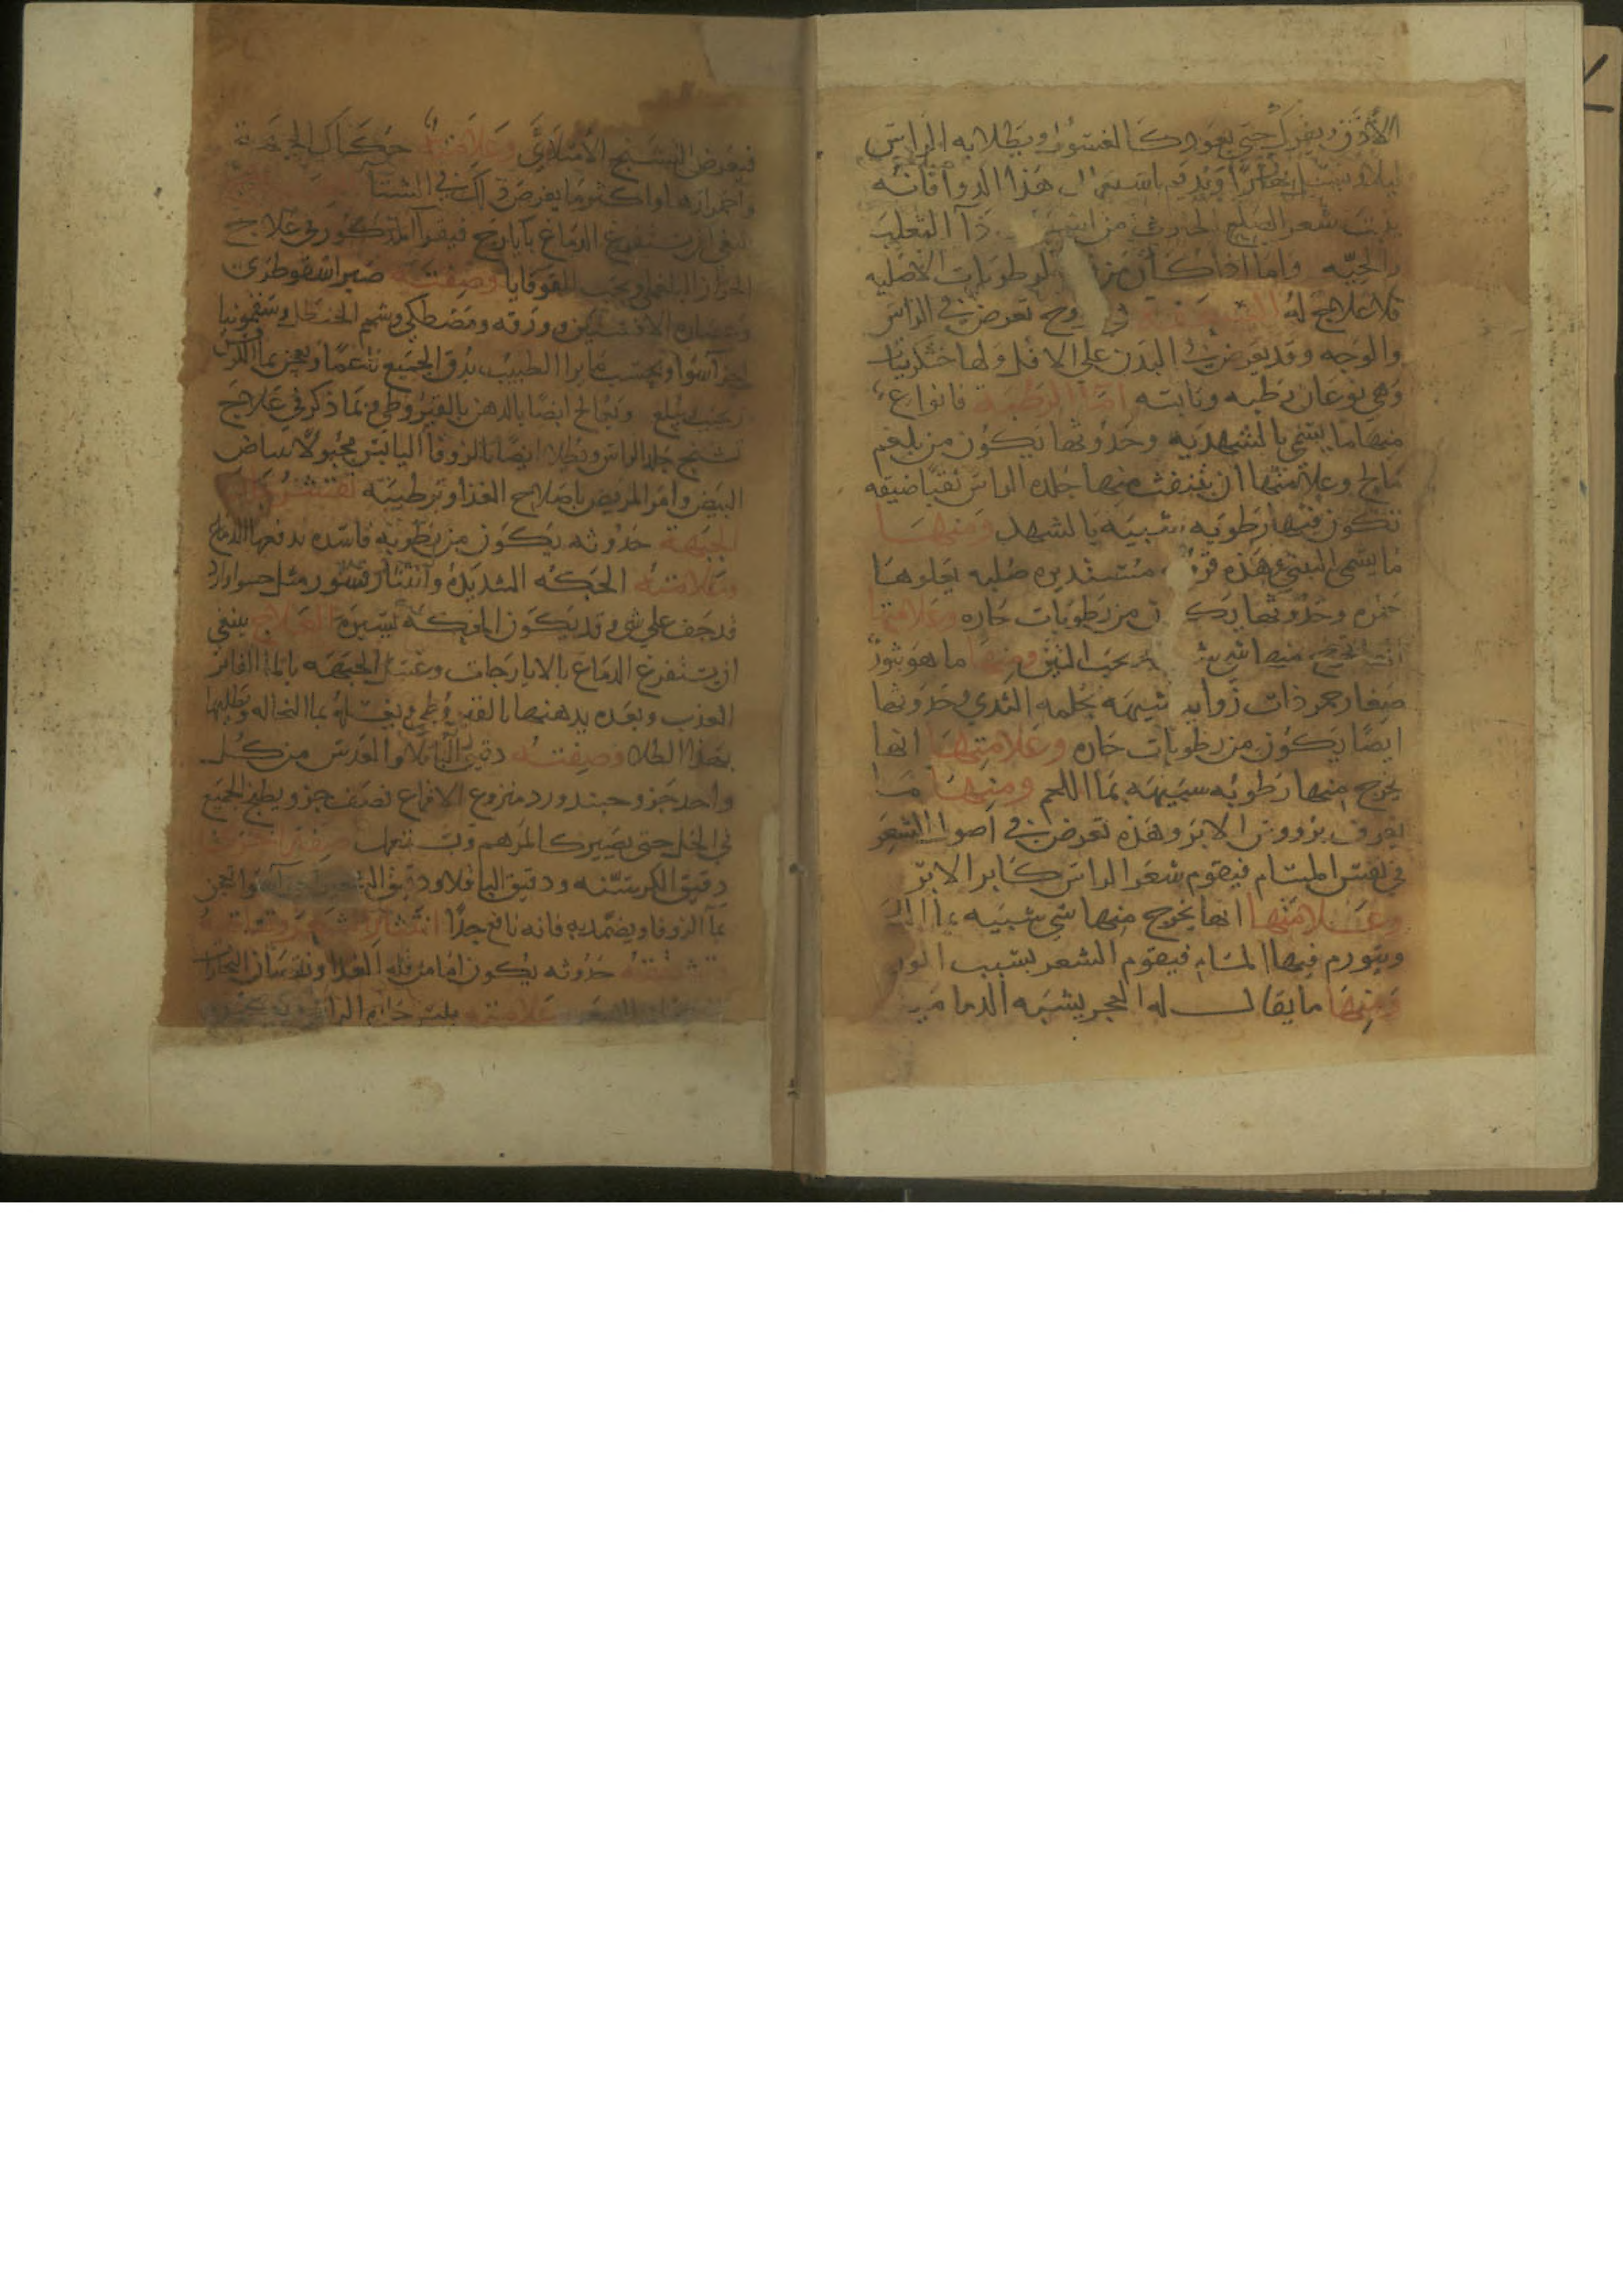 الأذقن ويفرك حتى يعود كالغسول ويطلا به الراس
ليلا ويغسل بكرًا ويديم باستعمال هذا الدوا فانه
ينبت شعر الصلع الحادث من دآ الثعلب
والحيّه واما اذا كان من الرطوبات الاصليه
فلا علاج له السعفة قروح تعرض في الراس
والوجه وقد يعرض في البدن على الاقل ولها خشكريشات
وهي نوعان رطبه ويابسه امّا الرطبة فانواع
منها ما يسمى بالشهديه وحدوثها يكون من بلغم
مالح وعلامتها ان يتثقب منها جلده الراس ثقبًا ضيقه
تكون فيها رطوبه شبيه بالشهد ومنها
ما يسمى التيني وهذه قروح مستديره صلبه يعلوها
حمره وحدوثها يكون من رطوبات حاره وعلامتها
منها شي بحب التين ومنها ما هو بثورٌ
صغار حمر ذات زوايد شبيهه بحلمه الثدي وحدوثها
ايضًا يكون من رطوبات حاره وعلامتها انها
يخرج منها رطوبه شبيهه بمآ اللحم ومنها ما
يعرف برووس الابر وهذه تعرض في اصول الشعر
في نفس المسام فيقوم شعر الراس كابر الابر
وعلامتها انها يخرج منها شي شبيه بمآ
ويتورم فيها المسام فيقوم الشعر بسبب الورم
ومنها ما يقال له العجر يشبه الدماميل
فيعرض التشنج الامتلائي وعلامته حركاك الجبهة
واحمرارها واكثر ما يعرض ذلك في الشتا
ينبغي ان يستفرغ الدماغ بايارج فيقرا المذكور في علاج
الحزاز البلغمي وبحب القوقايا وصفته صبر اسقوطرى
وعصاره الافسنتين وورقه ومصطكى وشحم الحنظل وسقمونيا
اجزآ سوا وبحسب ما يرا الطبيب يدق الجميع ناعمًا ويعجن بمآ الكرفس
ويحبب ويبلع ويعالج ايضًا بالدهن بالقيروطي مما ذكر في علاج
تشنج جلد الراس ويطلا ايضًا بالزوفا اليابس مجبولًا ببياض
البيض وامر المريض باصلاح الغذا وترطيبه تقشر جلد
الجبهة حدوثه يكون من رطوبه فاسده يدفعها الدماغ
وعلامته الحكه الشديده وانتثار قشور مثل
قد جف على شي وقد يكون الحكة يسيرة العلاج ينبغي
ان يستفرغ الدماغ بالايارجات وغسل الجبهه بالمآ الفاتر
العذب وبعده يدهنها بالقيروطي ويغسله بمآ النخاله ويطليها
بهذا الطلا وصفته دقيق الباقلا والعدس من كل
واحد جزو ورد منزوع الاقماع نصف جزو يطبخ الجميع
في الخل حتى يصير كالمرهم ويستعمل صفة اخرى
دقيق الكرسنه ودقيق الباقلا ودقيق الشعير اجزآ سوا يعجن
بمآ الزوفا ويضمد به فانه نافع جدًّا انتثار شعر
حدوثه يكون اما من قله الغدا ونقصان البخارات
علامته